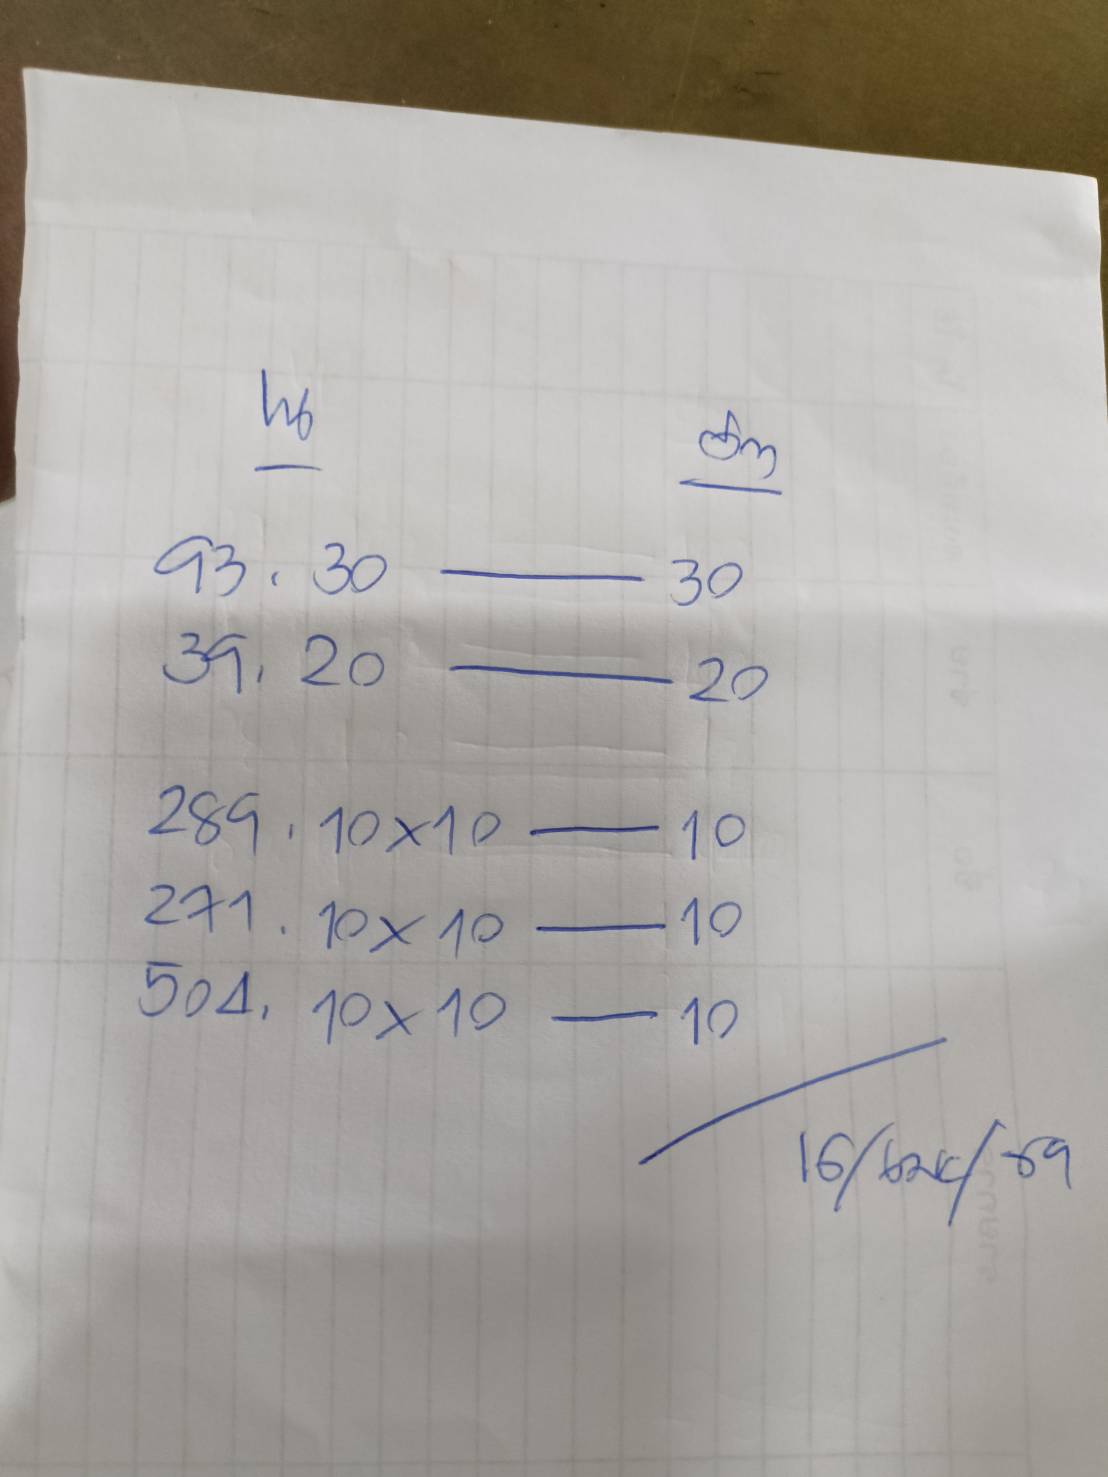 บน ล่าง
93. 30 — 30
39. 20 — 20
289. 10×10 — 10
271. 10×10 — 10
504. 10×10 — 10
16/เมย/69